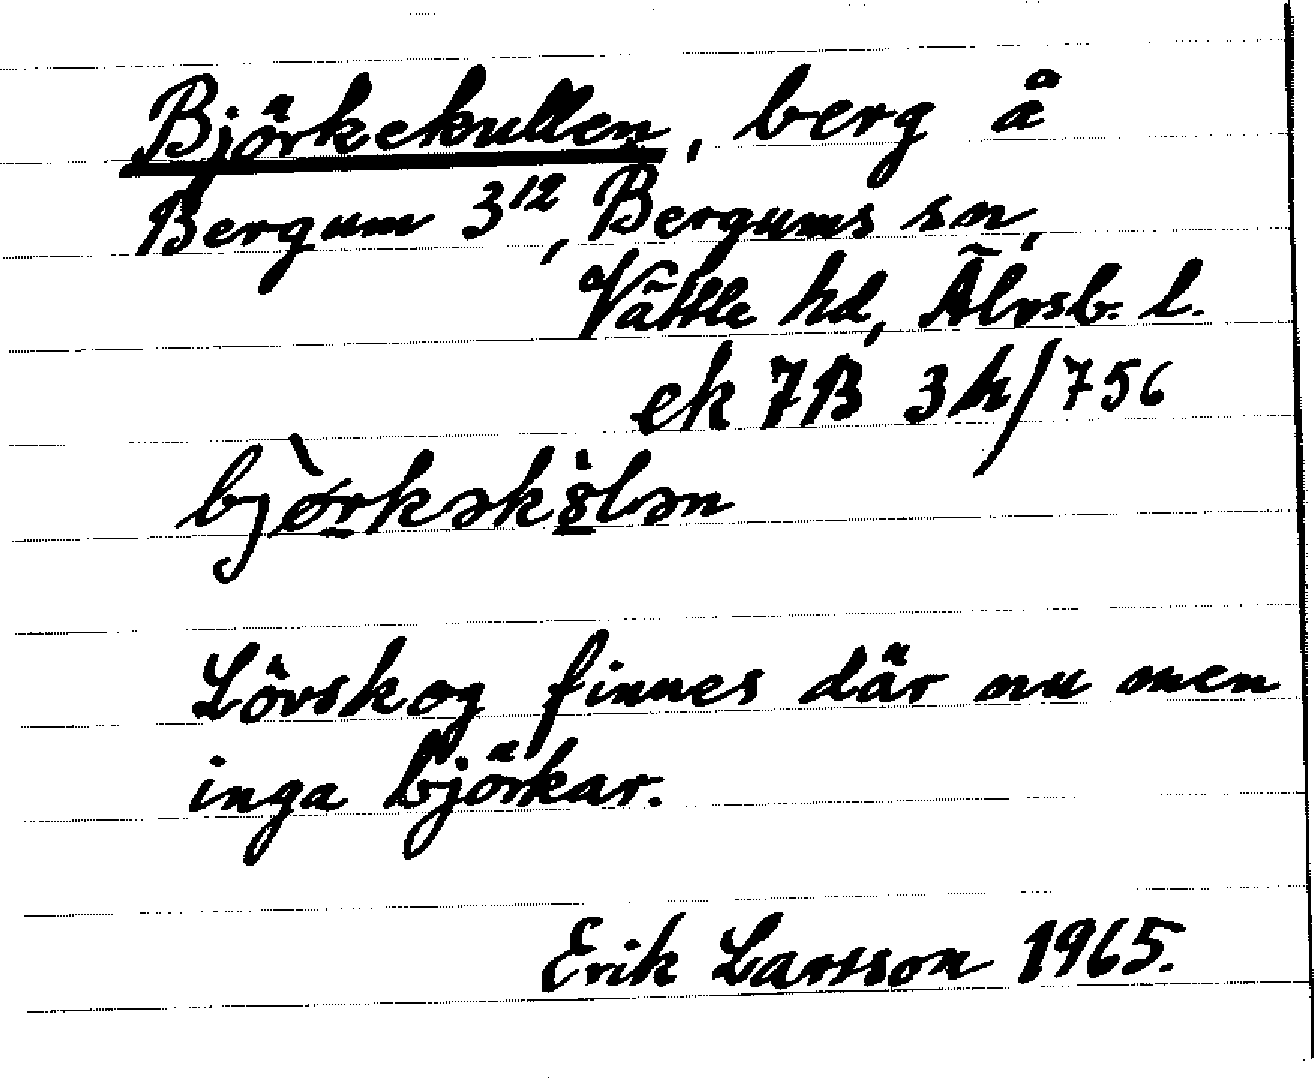 Björkekullen, berg å
Bergum 3¹², Bergums sn,
Vättle hd, Älvsb. l.
ek 7B 3h/756
bjørkəkulən
Lövskog finnes där nu men
inga björkar.
Erik Larsson 1965.